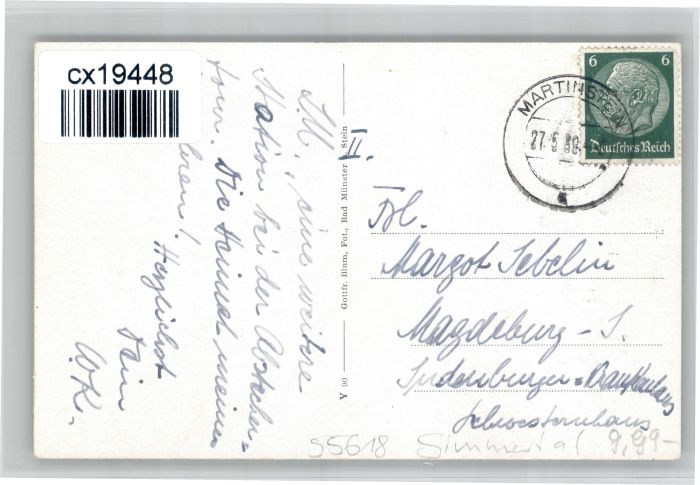 cx19448
L.M., eine weitere
Station bei der Abstecher=
tour. Die Heimat meiner
!
Herzlichst
Dein
W.K.
II.
Y 90
Gottfr. Blum, Fot., Bad Münster a. Stein
6 6
Deutsches Reich
MARTINSTEIN
27.5.39.
Frl.
Margot Sebelin
Magdeburg - S.
Sudenburger-Krankenhaus
Schwesternhaus
55618 Simmertal 9,99-